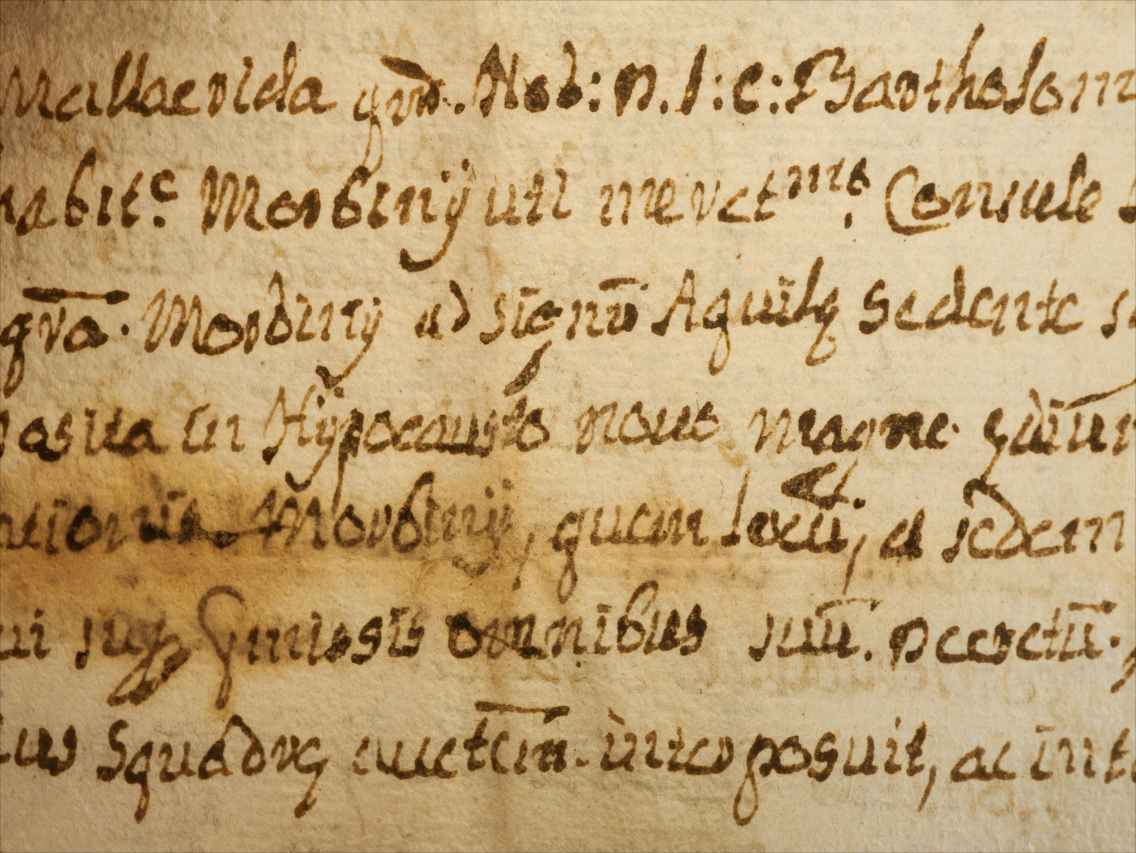 Mallacrida qm̃. Nob: D. I: C: Bartholom
habit.c Morbinij uti merctm̃s. Consule
qm̃. Morbinij ad signũ Aquilę sedente
posita in Hÿpocausto novo magnę
ationis Morbinij, quem locũ, et sedem
sui suę omnibus suũ. Decretũ.
Squadrę auctm̃. interposuit, ac int